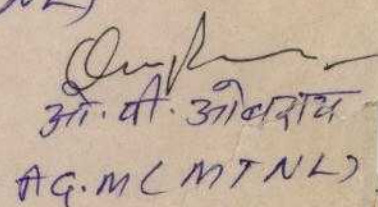 NL)
ओ. पी. ओबराय
AG.M (MTNL)